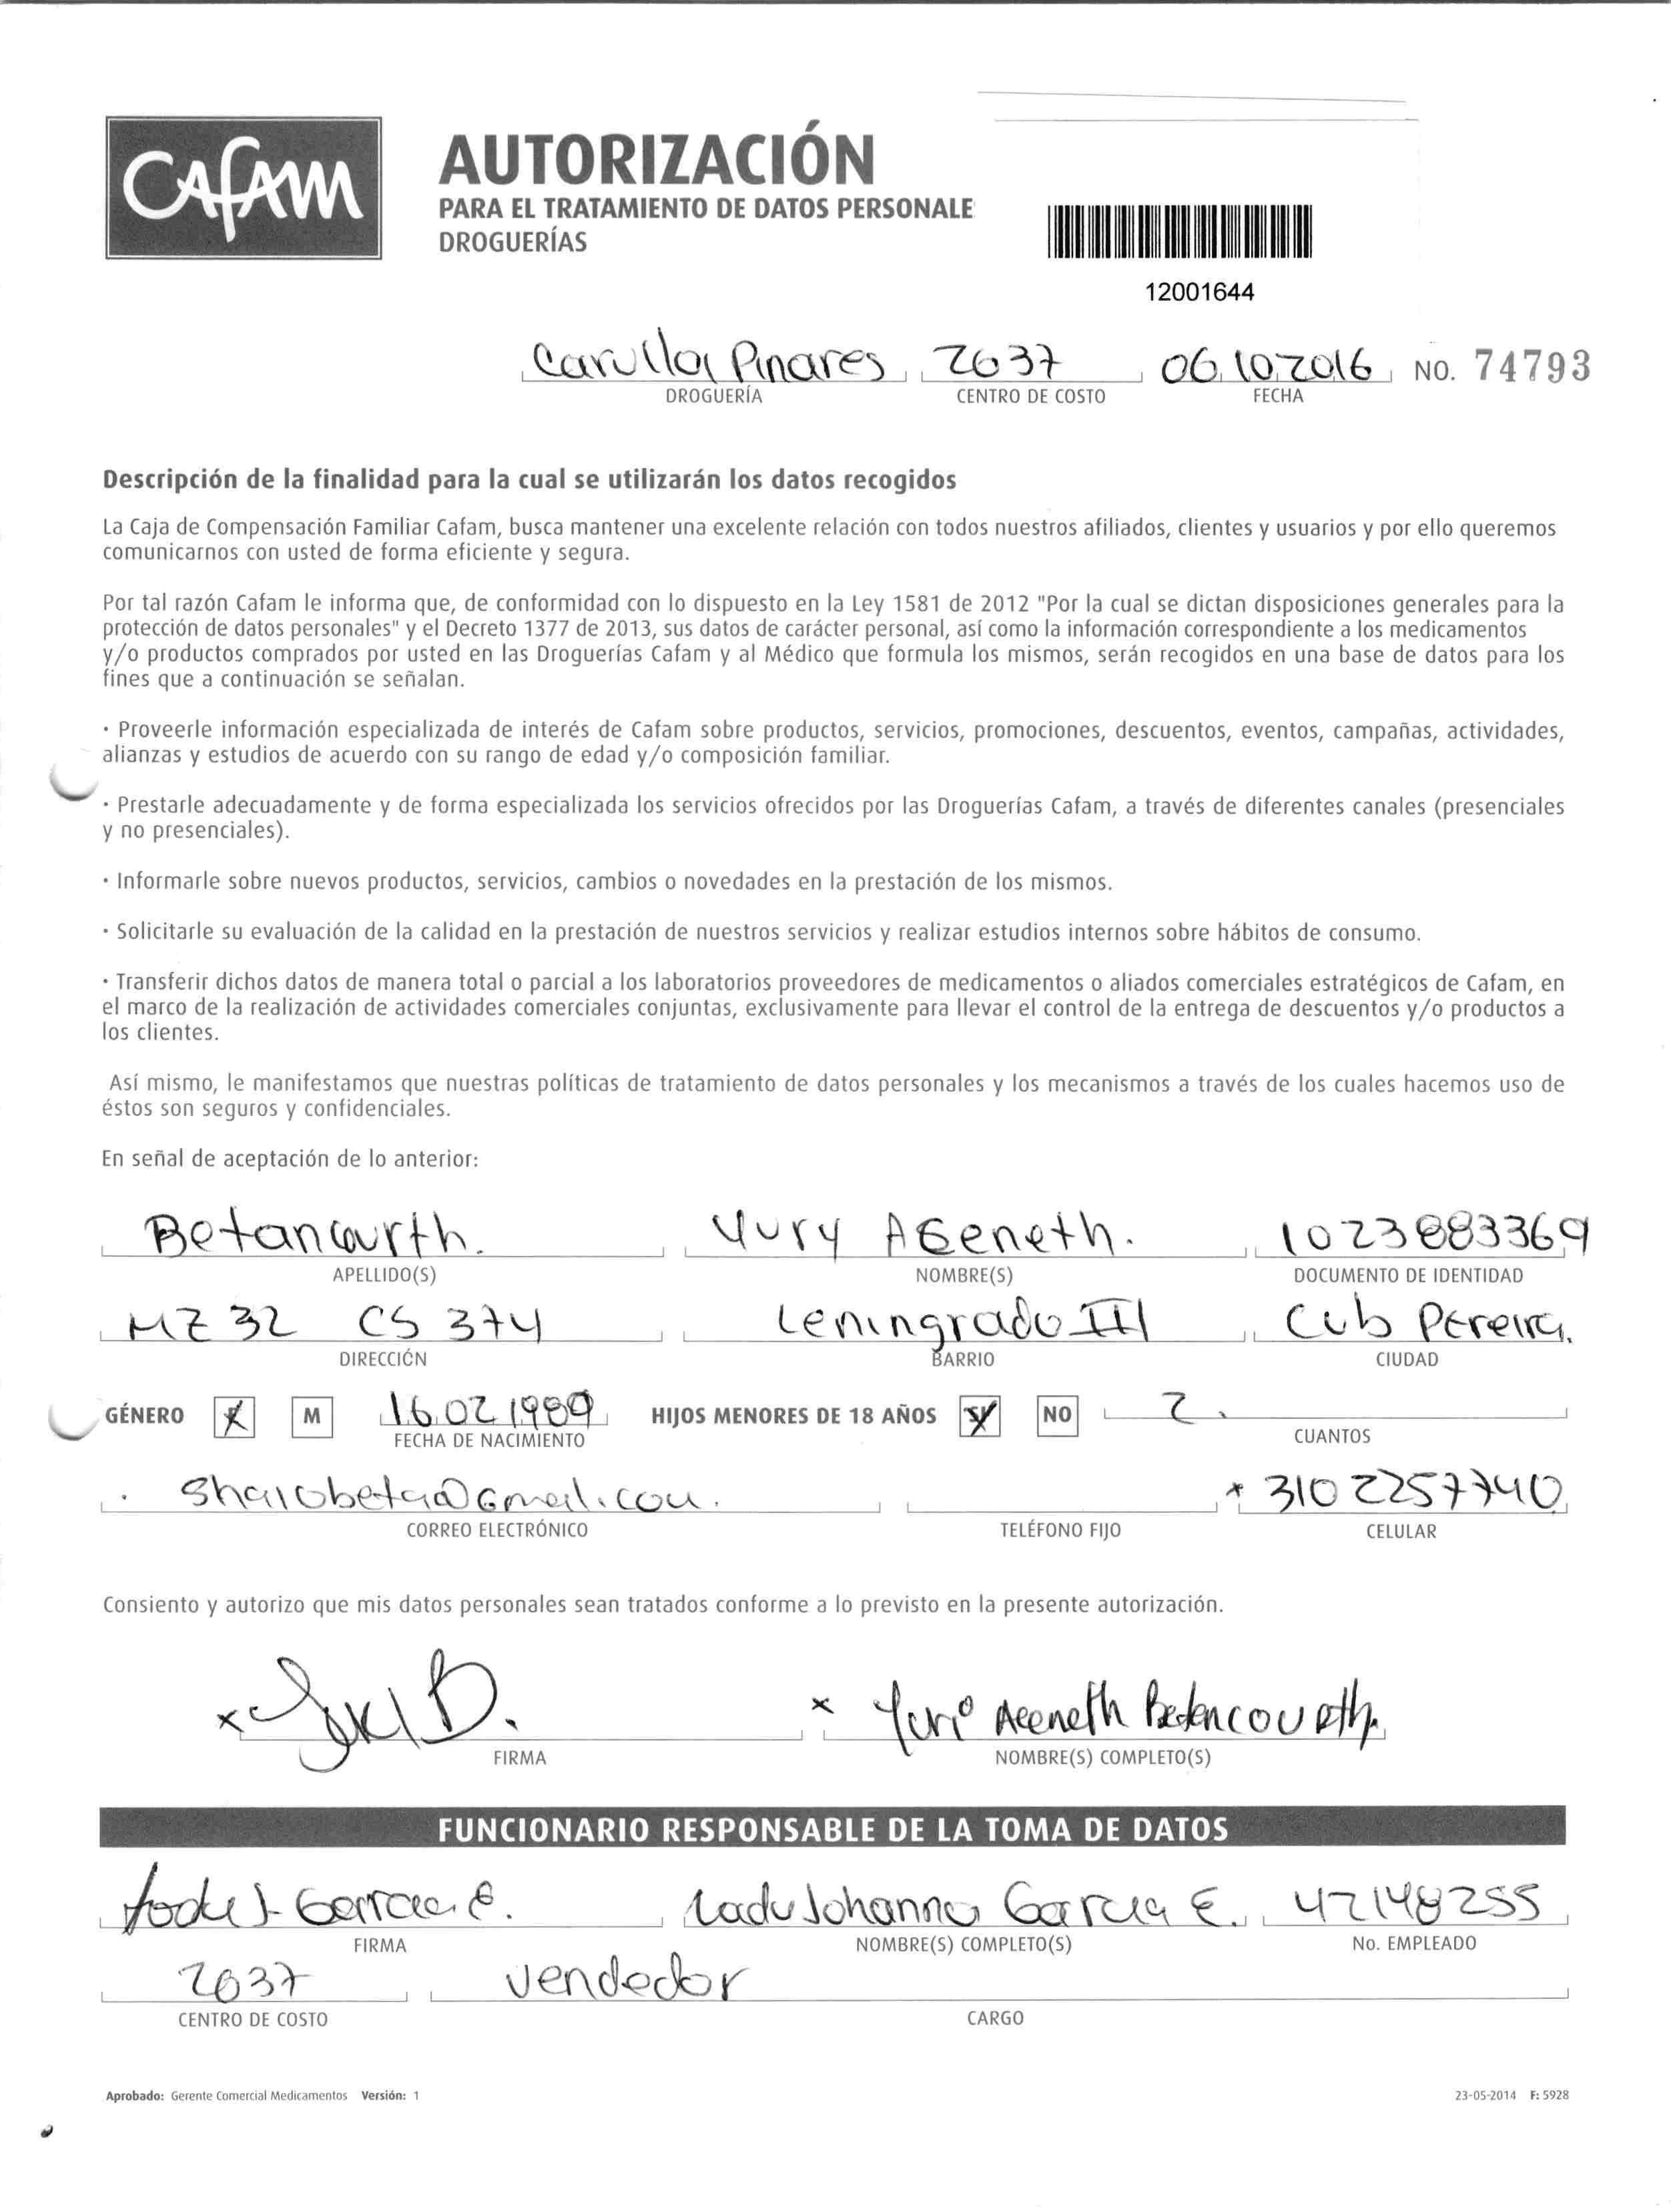 CAFAM
AUTORIZACIÓN
PARA EL TRATAMIENTO DE DATOS PERSONALE
DROGUERÍAS
12001644
Carulla Pinares 2637 06 10 2016 NO. 74793
DROGUERÍA CENTRO DE COSTO FECHA
Descripción de la finalidad para la cual se utilizarán los datos recogidos
La Caja de Compensación Familiar Cafam, busca mantener una excelente relación con todos nuestros afiliados, clientes y usuarios y por ello queremos
comunicarnos con usted de forma eficiente y segura.
Por tal razón Cafam le informa que, de conformidad con lo dispuesto en la Ley 1581 de 2012 "Por la cual se dictan disposiciones generales para la
protección de datos personales" y el Decreto 1377 de 2013, sus datos de carácter personal, así como la información correspondiente a los medicamentos
y/o productos comprados por usted en las Droguerías Cafam y al Médico que formula los mismos, serán recogidos en una base de datos para los
fines que a continuación se señalan.
· Proveerle información especializada de interés de Cafam sobre productos, servicios, promociones, descuentos, eventos, campañas, actividades,
alianzas y estudios de acuerdo con su rango de edad y/o composición familiar.
· Prestarle adecuadamente y de forma especializada los servicios ofrecidos por las Droguerías Cafam, a través de diferentes canales (presenciales
y no presenciales).
· Informarle sobre nuevos productos, servicios, cambios o novedades en la prestación de los mismos.
· Solicitarle su evaluación de la calidad en la prestación de nuestros servicios y realizar estudios internos sobre hábitos de consumo.
· Transferir dichos datos de manera total o parcial a los laboratorios proveedores de medicamentos o aliados comerciales estratégicos de Cafam, en
el marco de la realización de actividades comerciales conjuntas, exclusivamente para llevar el control de la entrega de descuentos y/o productos a
los clientes.
Así mismo, le manifestamos que nuestras políticas de tratamiento de datos personales y los mecanismos a través de los cuales hacemos uso de
éstos son seguros y confidenciales.
En señal de aceptación de lo anterior:
Betancourth. Yury Aseneth. 1023883369
APELLIDO(S) NOMBRE(S) DOCUMENTO DE IDENTIDAD
MZ 32 CS 374 Leningrado III Cub Pereira.
DIRECCIÓN BARRIO CIUDAD
GÉNERO F M 16 02 1989 HIJOS MENORES DE 18 AÑOS SI NO 2.
FECHA DE NACIMIENTO CUANTOS
310 2257740
CORREO ELECTRÓNICO TELÉFONO FIJO CELULAR
Consiento y autorizo que mis datos personales sean tratados conforme a lo previsto en la presente autorización.
x x Yuri Aceneth Betancourth.
FIRMA NOMBRE(S) COMPLETO(S)
FUNCIONARIO RESPONSABLE DE LA TOMA DE DATOS
Johanna Garcia E. 42148255
FIRMA NOMBRE(S) COMPLETO(S) No. EMPLEADO
2637 vendedor
CENTRO DE COSTO CARGO
Aprobado: Gerente Comercial Medicamentos Versión: 1 23-05-2014 F: 5928